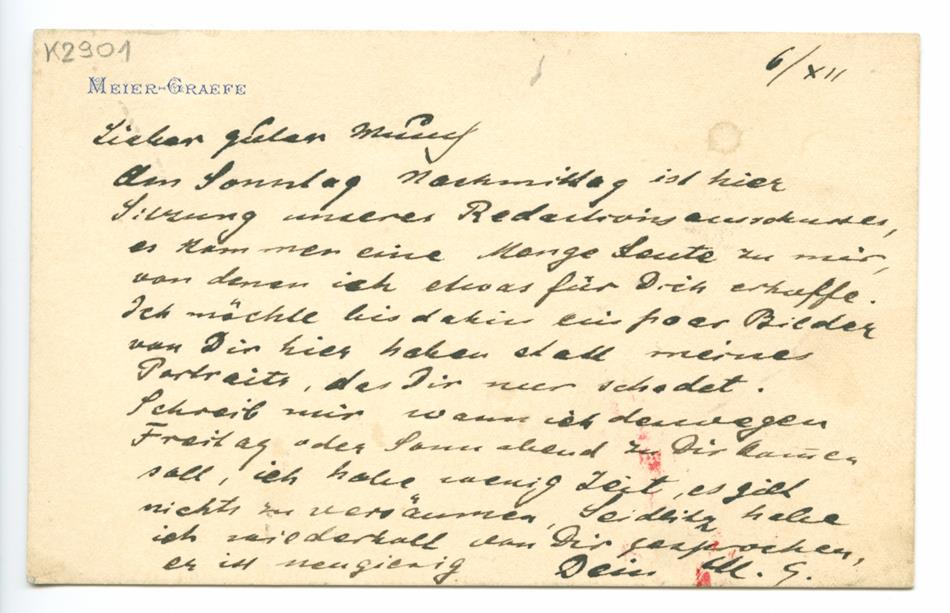 K2901
6/XII
MEIER-GRAEFE
Lieber guter Munch
Am Sonntag Nachmittag ist hier
Sitzung unseres Redactionsausschusses,
es kommen eine Menge Leute zu mir,
von denen ich etwas für Dich erhoffe.
Ich möchte bis dahin ein paar Bilder
von Dir hier haben statt meines
Portraits, das Dir nur schadet.
Schreib mir wann ich deswegen
Freitag oder Sonnabend zu Dir kom̅en
soll, ich habe wenig Zeit, es gilt
nichts zu versäumen, Seidlitz habe
ich wiederholt von Dir gesprochen,
er ist neugierig Dein M. G.